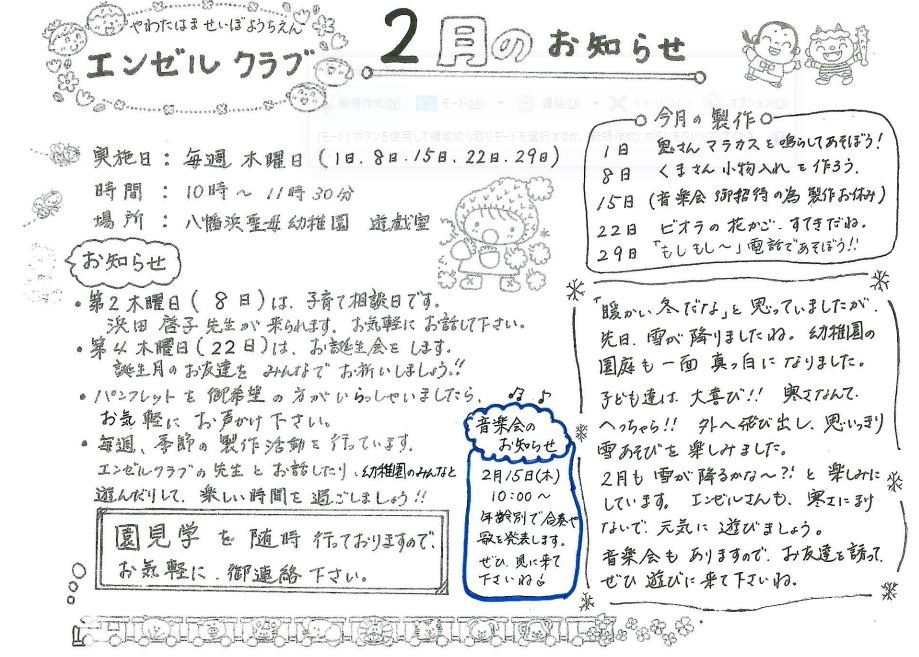 やわたはませいぼようちえん
エンゼルクラブ
2月のお知らせ
実施日：毎週 木曜日（1日、8日、15日、22日、29日）
時間：10時～11時30分
場所：八幡浜聖母幼稚園 遊戯室
お知らせ
・第2木曜日（8日）は、子育て相談日です。
浜田 啓子先生が来られます。お気軽にお話して下さい。
・第4木曜日（22日）は、お誕生会をします。
誕生月のお友達を みんなでお祈いしましょう!!
・パンフレットを御希望の方がいらっしゃいましたら、
お気軽に お声かけ下さい。
・毎週、季節の製作活動を行っています。
エンゼルクラブの先生とお話したり、幼稚園のみんなと
遊んだりして、楽しい時間を過ごしましょう!!
園見学を随時行っておりますので、
お気軽に、御連絡下さい。
音楽会の
お知らせ
2月15日（木）
10:00～
年齢別で合奏や
歌を発表します。
ぜひ、見に来て
下さいね
今月の製作
1日 鬼さんマラカスを鳴らしてあそぼう!
8日 くまさん小物入れを作ろう。
15日（音楽会御招待の為製作お休み）
22日 ビオラの花かご、すてきだね。
29日 「もしもし～」電話であそぼう!!
「暖かい冬だな」と思っていましたが、
先日、雪が降りましたね。幼稚園の
園庭も一面 真っ白になりました。
子ども達は 大喜び!! 寒さなんて、
へっちゃら!! 外へ飛び出し、思いっきり
雪あそびを楽しみました。
2月も雪が降るかな～?! と楽しみに
しています。エンゼルさんも、寒さにまけ
ないで、元気に 遊びましょう。
音楽会もありますので、お友達を誘って、
ぜひ遊びに来て下さいね。